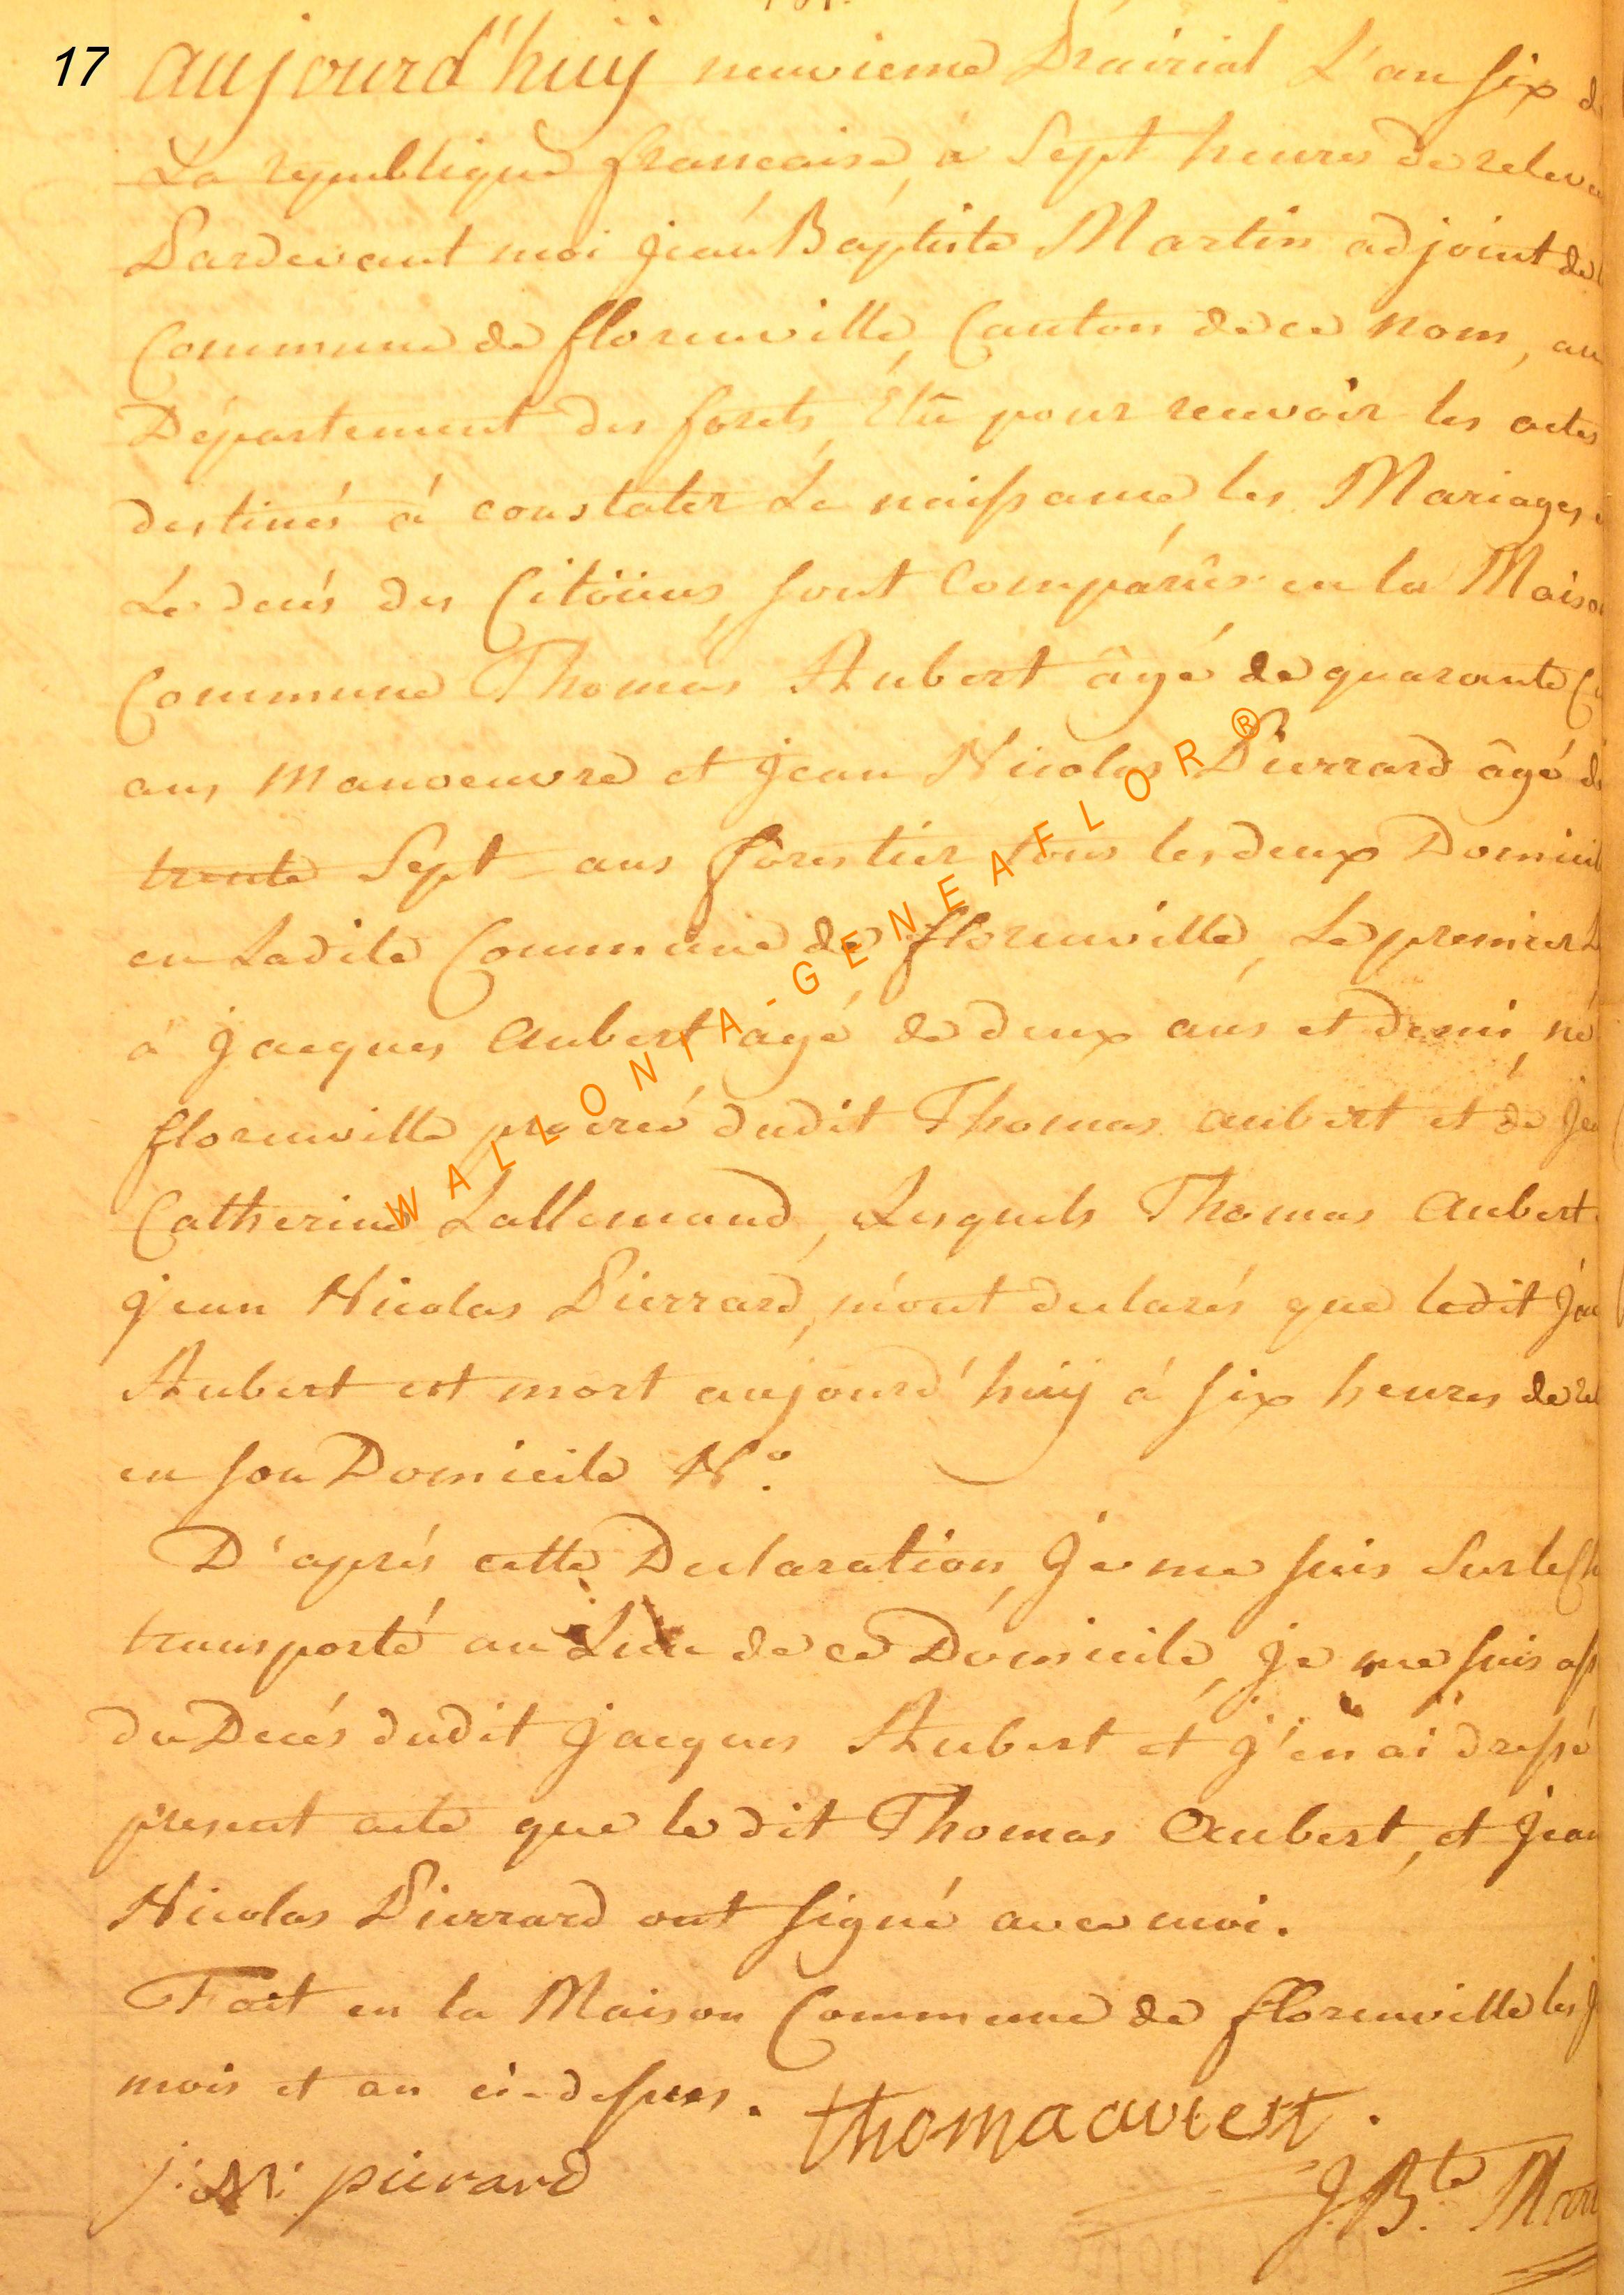 17
aujourd'huij neuvieme Prairial L'an six de
La republique francaise, à Sept heures de releve
Pardevant moi jean Baptiste Martin adjoint de
Commune de florenville, Canton de ce nom, au
Département des forets, Elû pour recevoir les actes
destinés á constater La naissance, les Mariages
Le decés des Citöiens, sont Comparûs en la Maison
Commune Thomas Aubert âgé de quarante
ans manoeuvre et jean Nicolas Pierrard âgé de
trente Sept ans forestier tous les deux Domicil
en Ladite Commune de florenville, Le premier
à jacques aubert agé de deux ans et demi, né
florenville procreé dudit Thomas aubert et de
Catherine Lallemand, Lesquels Thomas aubert
jean Nicolas Pierrard, m'ont declarés que ledit
Aubert est mort aujourd'huij á six heures de rel
en son Domicile N°.
D'aprés cette Declaration, Je me suis Sur le
transporté au Lieu de ce Domicile, je me suis ass
du Decés dudit jacques Aubert et j'en ai dressé
present acte que le dit Thomas aubert, et jean
Nicolas Pierrard ont signé avec moi.
Fait en la Maison Commune de florenville les
mois et an ci-dessus. thoma auvert.
j: N: pierard
J. Bte Mart
WALLONIA-GENEAFLOR®